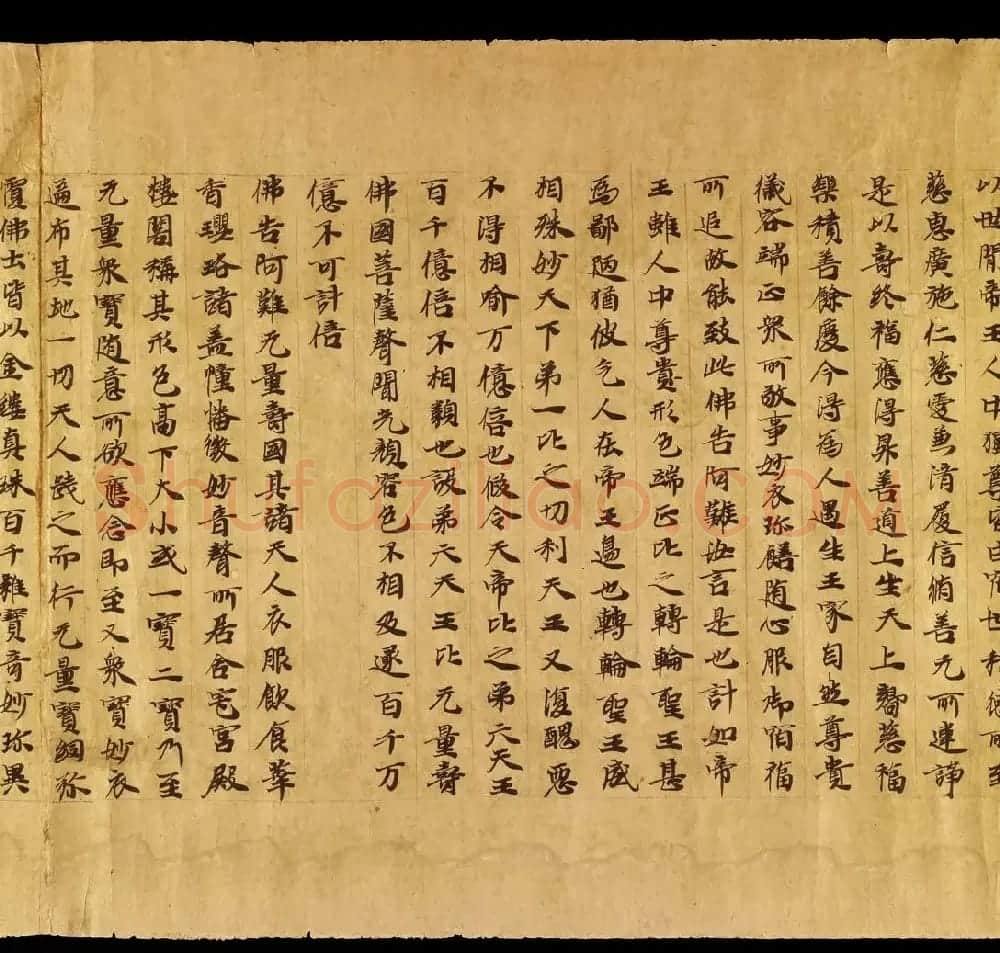 以世間帝王人中獨尊皆由宿世積德所至
慈惠廣施仁慈愛兼濟履信脩善无所違諍
是以壽終福應得昇善道上生天上嚮慈福
樂積善餘慶今得為人遇生王家自然尊貴
儀容端正衆所敬事妙衣珎饍随心服御宿福
所追故能致此佛告阿難汝言是也計如帝
王雖人中尊貴形色端正比之轉輪聖王甚
為鄙陋猶彼乞人在帝王邊也轉輪聖王威
相殊妙天下第一比之切利天王又復醜惡
不得相喻万億倍也假令天帝比之第六天王
百千億倍不相類也設第六天王比无量壽
佛國菩薩聲聞光顏容色不相及逮百千万
億不可計倍
佛告阿難无量壽國其諸天人衣服飲食華
香瓔珞諸盖幢幡微妙音聲所居舍宅宮殿
樓閣稱其形色高下大小或一寶二寶乃至
无量衆寶随意所欲應念即至又衆寶妙衣
遍布其地一切天人踐之而行无量寶網弥
覆佛土皆以金縷真珠百千雜寶奇妙珎異
Shufaziliao.COM